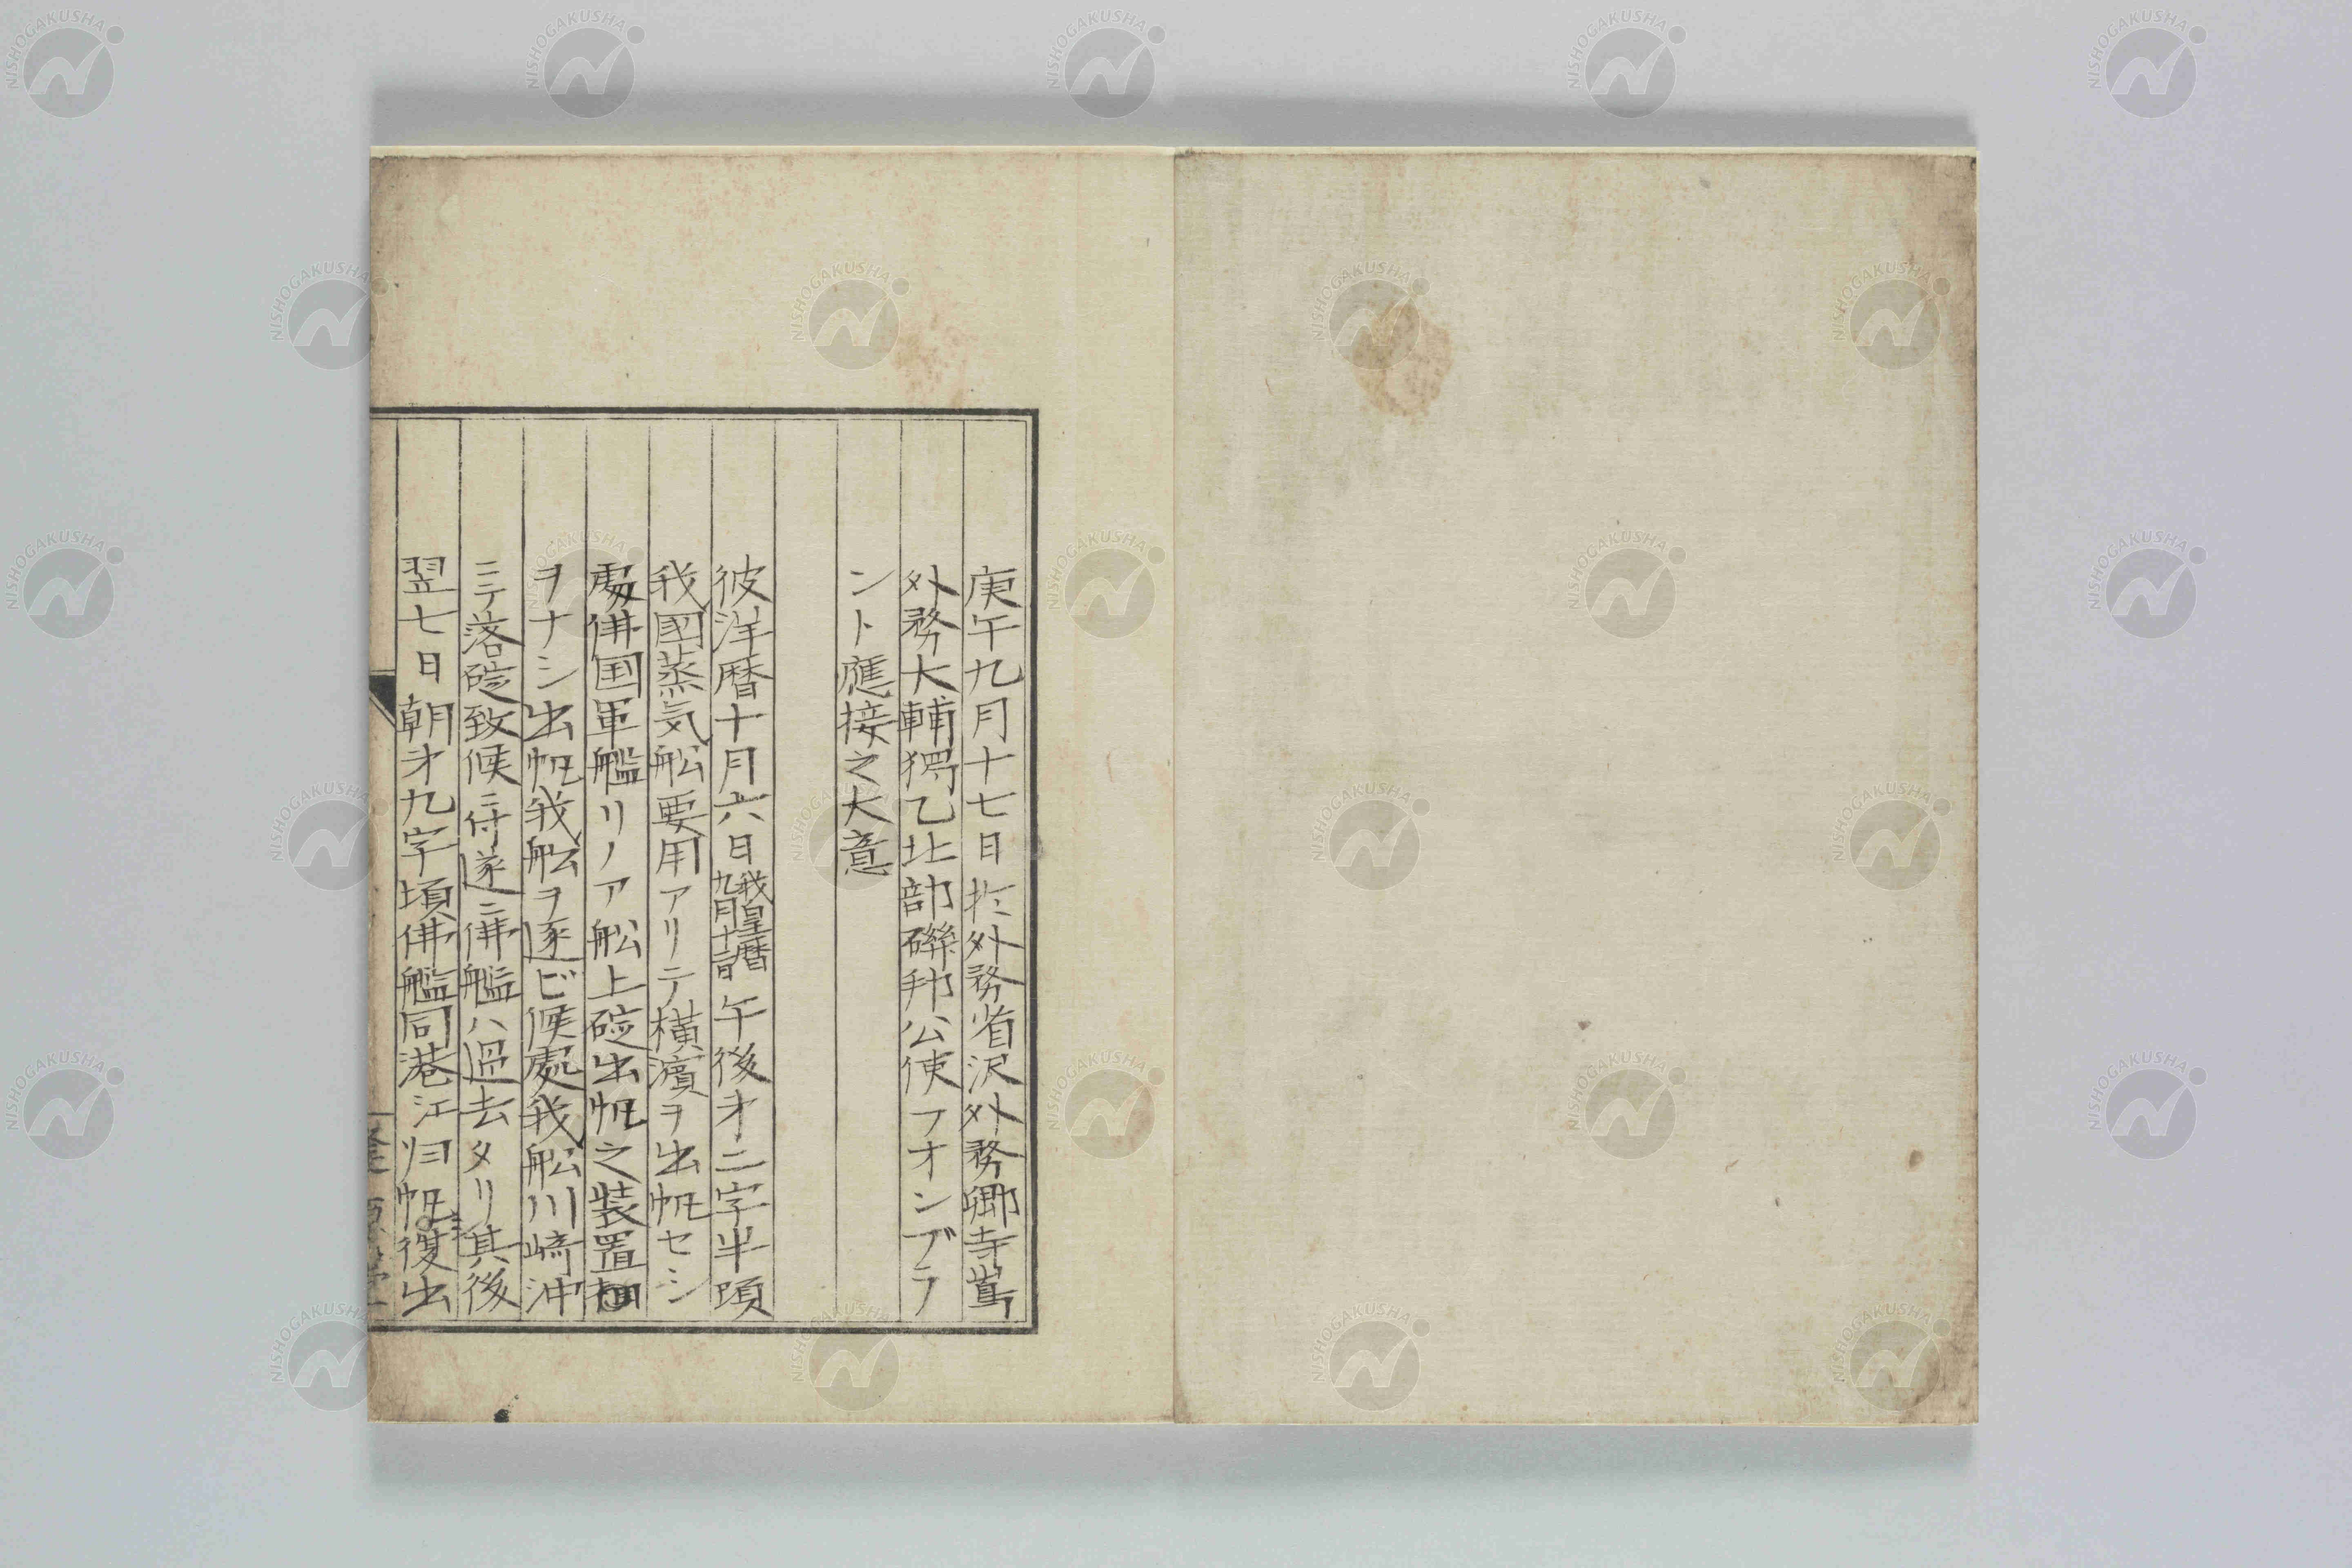 庚午九月十七日於外務省沢外務卿寺嶌
外務大輔獨乙北部聯邦公使フオンブラ
ント應接之大意
彼洋暦十月六日我皇暦九月十二日午後才二字半頃
我國蒸気舩要用アリテ横濱ヲ出帆セシ
處佛国軍艦リノア舩上碇出帆之装置
ヲナシ出帆我舩ヲ逐ビ候處我舩川﨑沖
ニテ落碇致候ニ付遂ニ佛艦ハ過去タリ其後
翌七日朝才九字頃佛艦同港江归帆復出
NISHOGAKUSHA